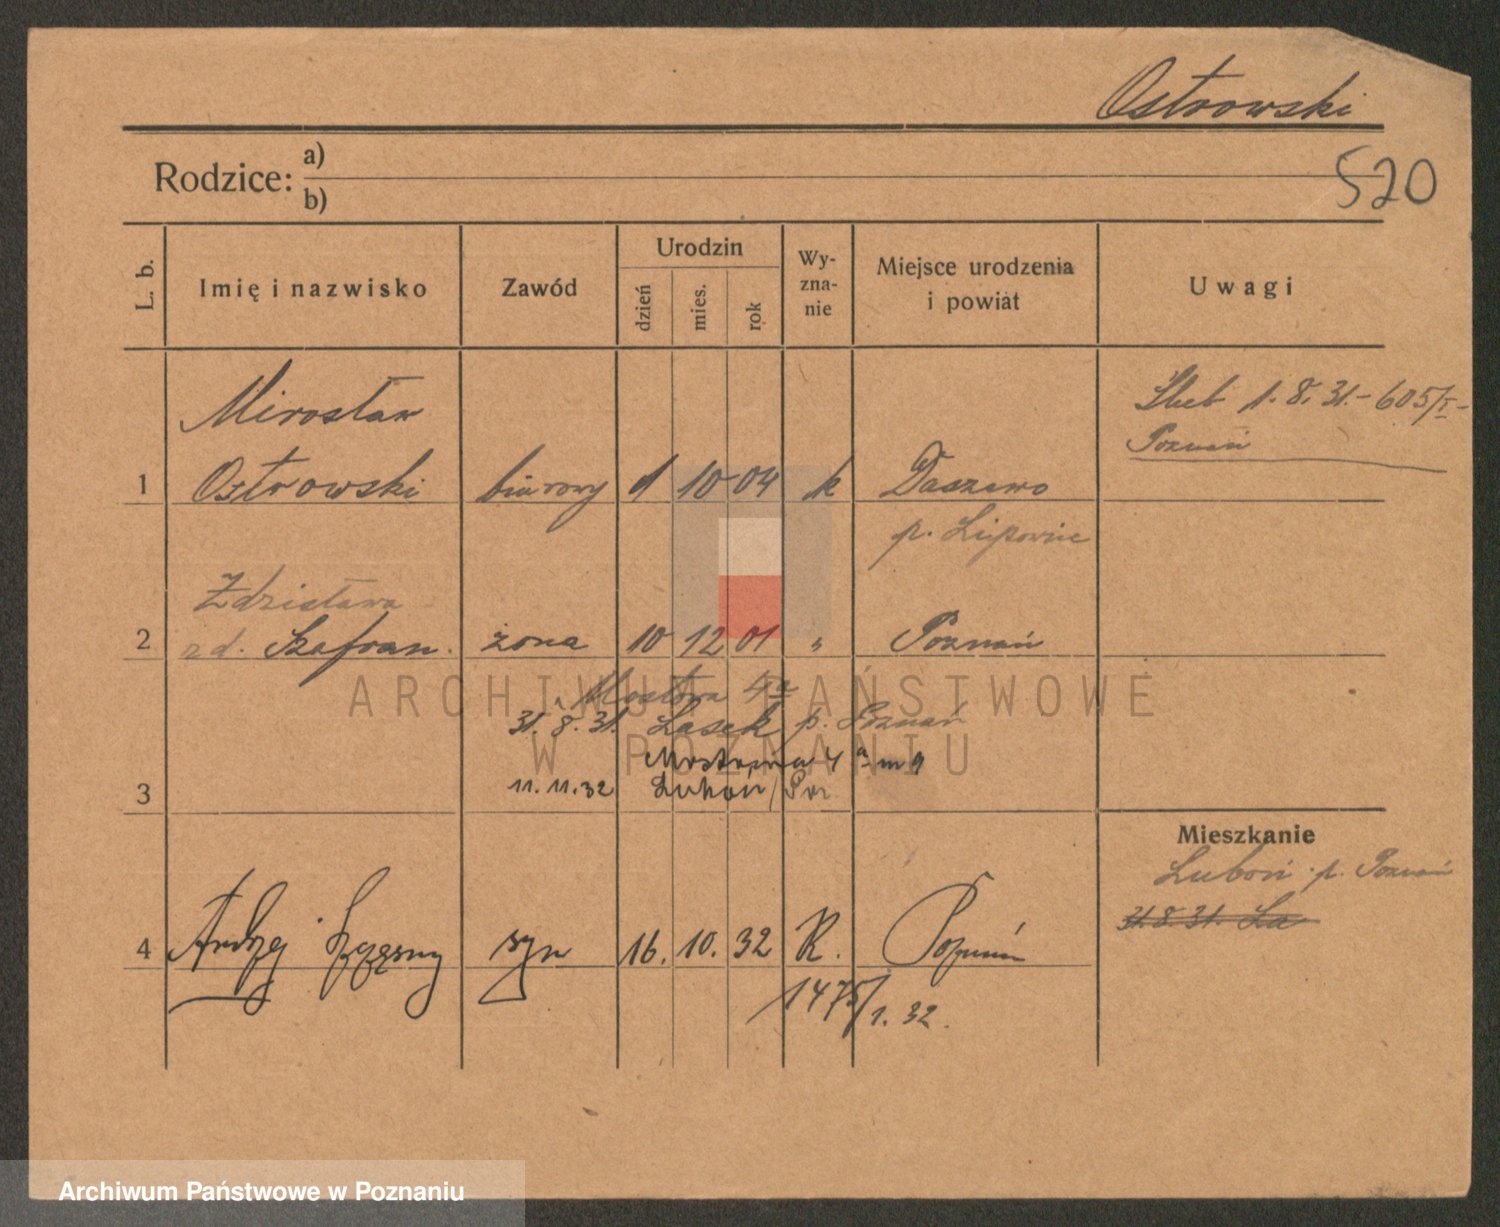 Ostrowski
Rodzice: a)
b)
520
L. b.
Imię i nazwisko
Zawód
Urodzin
dzień
mies.
rok
Wy-
zna-
nie
Miejsce urodzenia
i powiat
Uwagi
Mirosław
1 Ostrowski biurowy 1 10 04 k Daszewo
p. Lipowiec
Ślub 1.8.31.-605/I-
Poznań
Zdzisława
2 zd. Szafran. żona 10 12 01 " Poznań
Mostowa 4a
31.8.31. Lasek p. Poznań
Mostowa 4a m 9
3 11.11.32 Luboń/Poz
Mieszkanie
Luboń p. Poznań
31.8.31. La
4 Andrzej Szczęsny syn 16. 10. 32 R. Poznań
1475/1.32.
ARCHIWUM PAŃSTWOWE
W POZNANIU
Archiwum Państwowe w Poznaniu